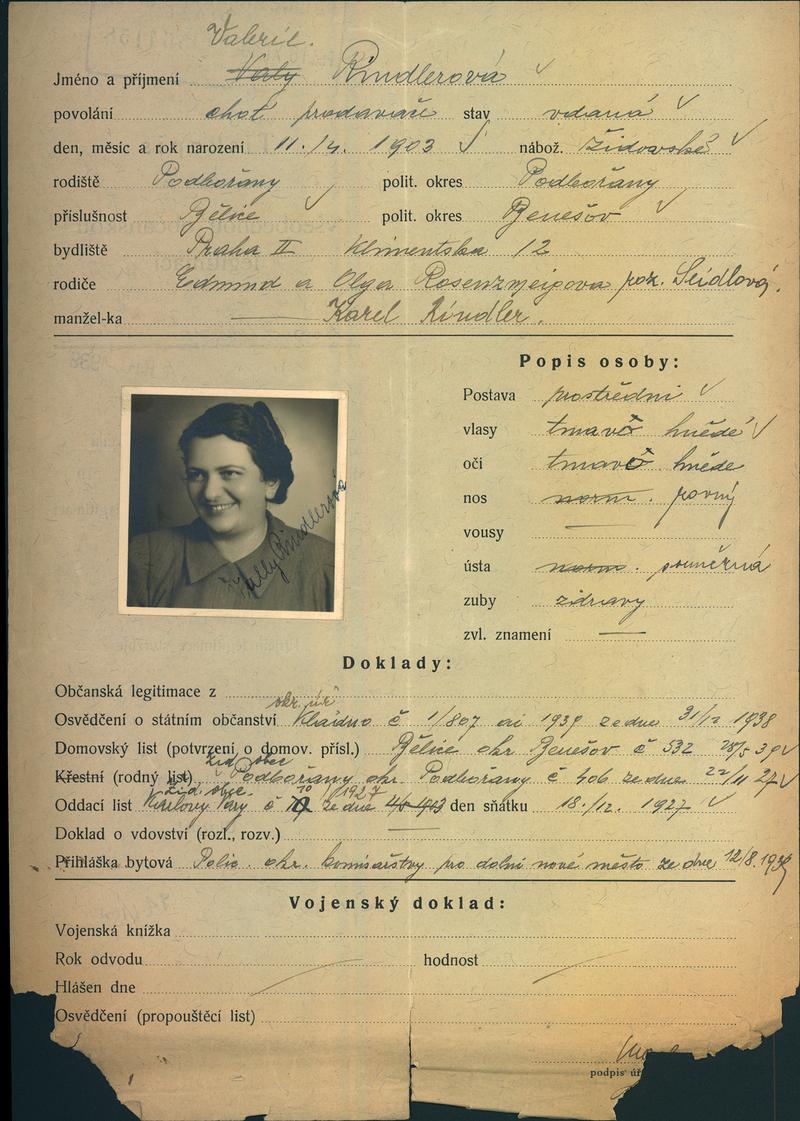 Valerie.
Jméno a příjmení Vally Kindlerová
povolání choť prodavače stav vdaná
den, měsíc a rok narození 11./4. 1903 nábož. židovské
rodiště Podbořany polit. okres Podbořany
příslušnost Bělice polit. okres Benešov
bydliště Praha II Klimentska 12
rodiče Edmund a Olga Rosenzweigova roz. Seidlová.
manžel-ka Karel Kindler.
Popis osoby:
Postava prostřední
vlasy tmavě hnědé
oči tmavě hněde
nos norm. rovný
vousy
ústa norm. souměrná
zuby zdravy
zvl. znamení
Vally Kindlerová
Doklady:
Občanská legitimace z
okr. úř
Osvědčení o státním občanství Kladno č 1/807 ai 1939 ze dne 31/12 1938
Domovský list (potvrzení o domov. přísl.) Bělice okr Benešov č 532 39
žid. obec
Křestní (rodný list) Podbořany okr. Podbořany č 406 ze dne 22/11 27
žid. obec. 10 1927
Oddací list Karlovy Vary č ze dne den sňatku 18./12. 1927
Doklad o vdovství (rozl., rozv.)
Přihláška bytová Polic. okr. komisařstvy pro dolní nové město ze dne 12/8. 1939
Vojenský doklad:
Vojenská knížka
Rok odvodu hodnost
Hlášen dne
Osvědčení (propouštěcí list)
podpis úř